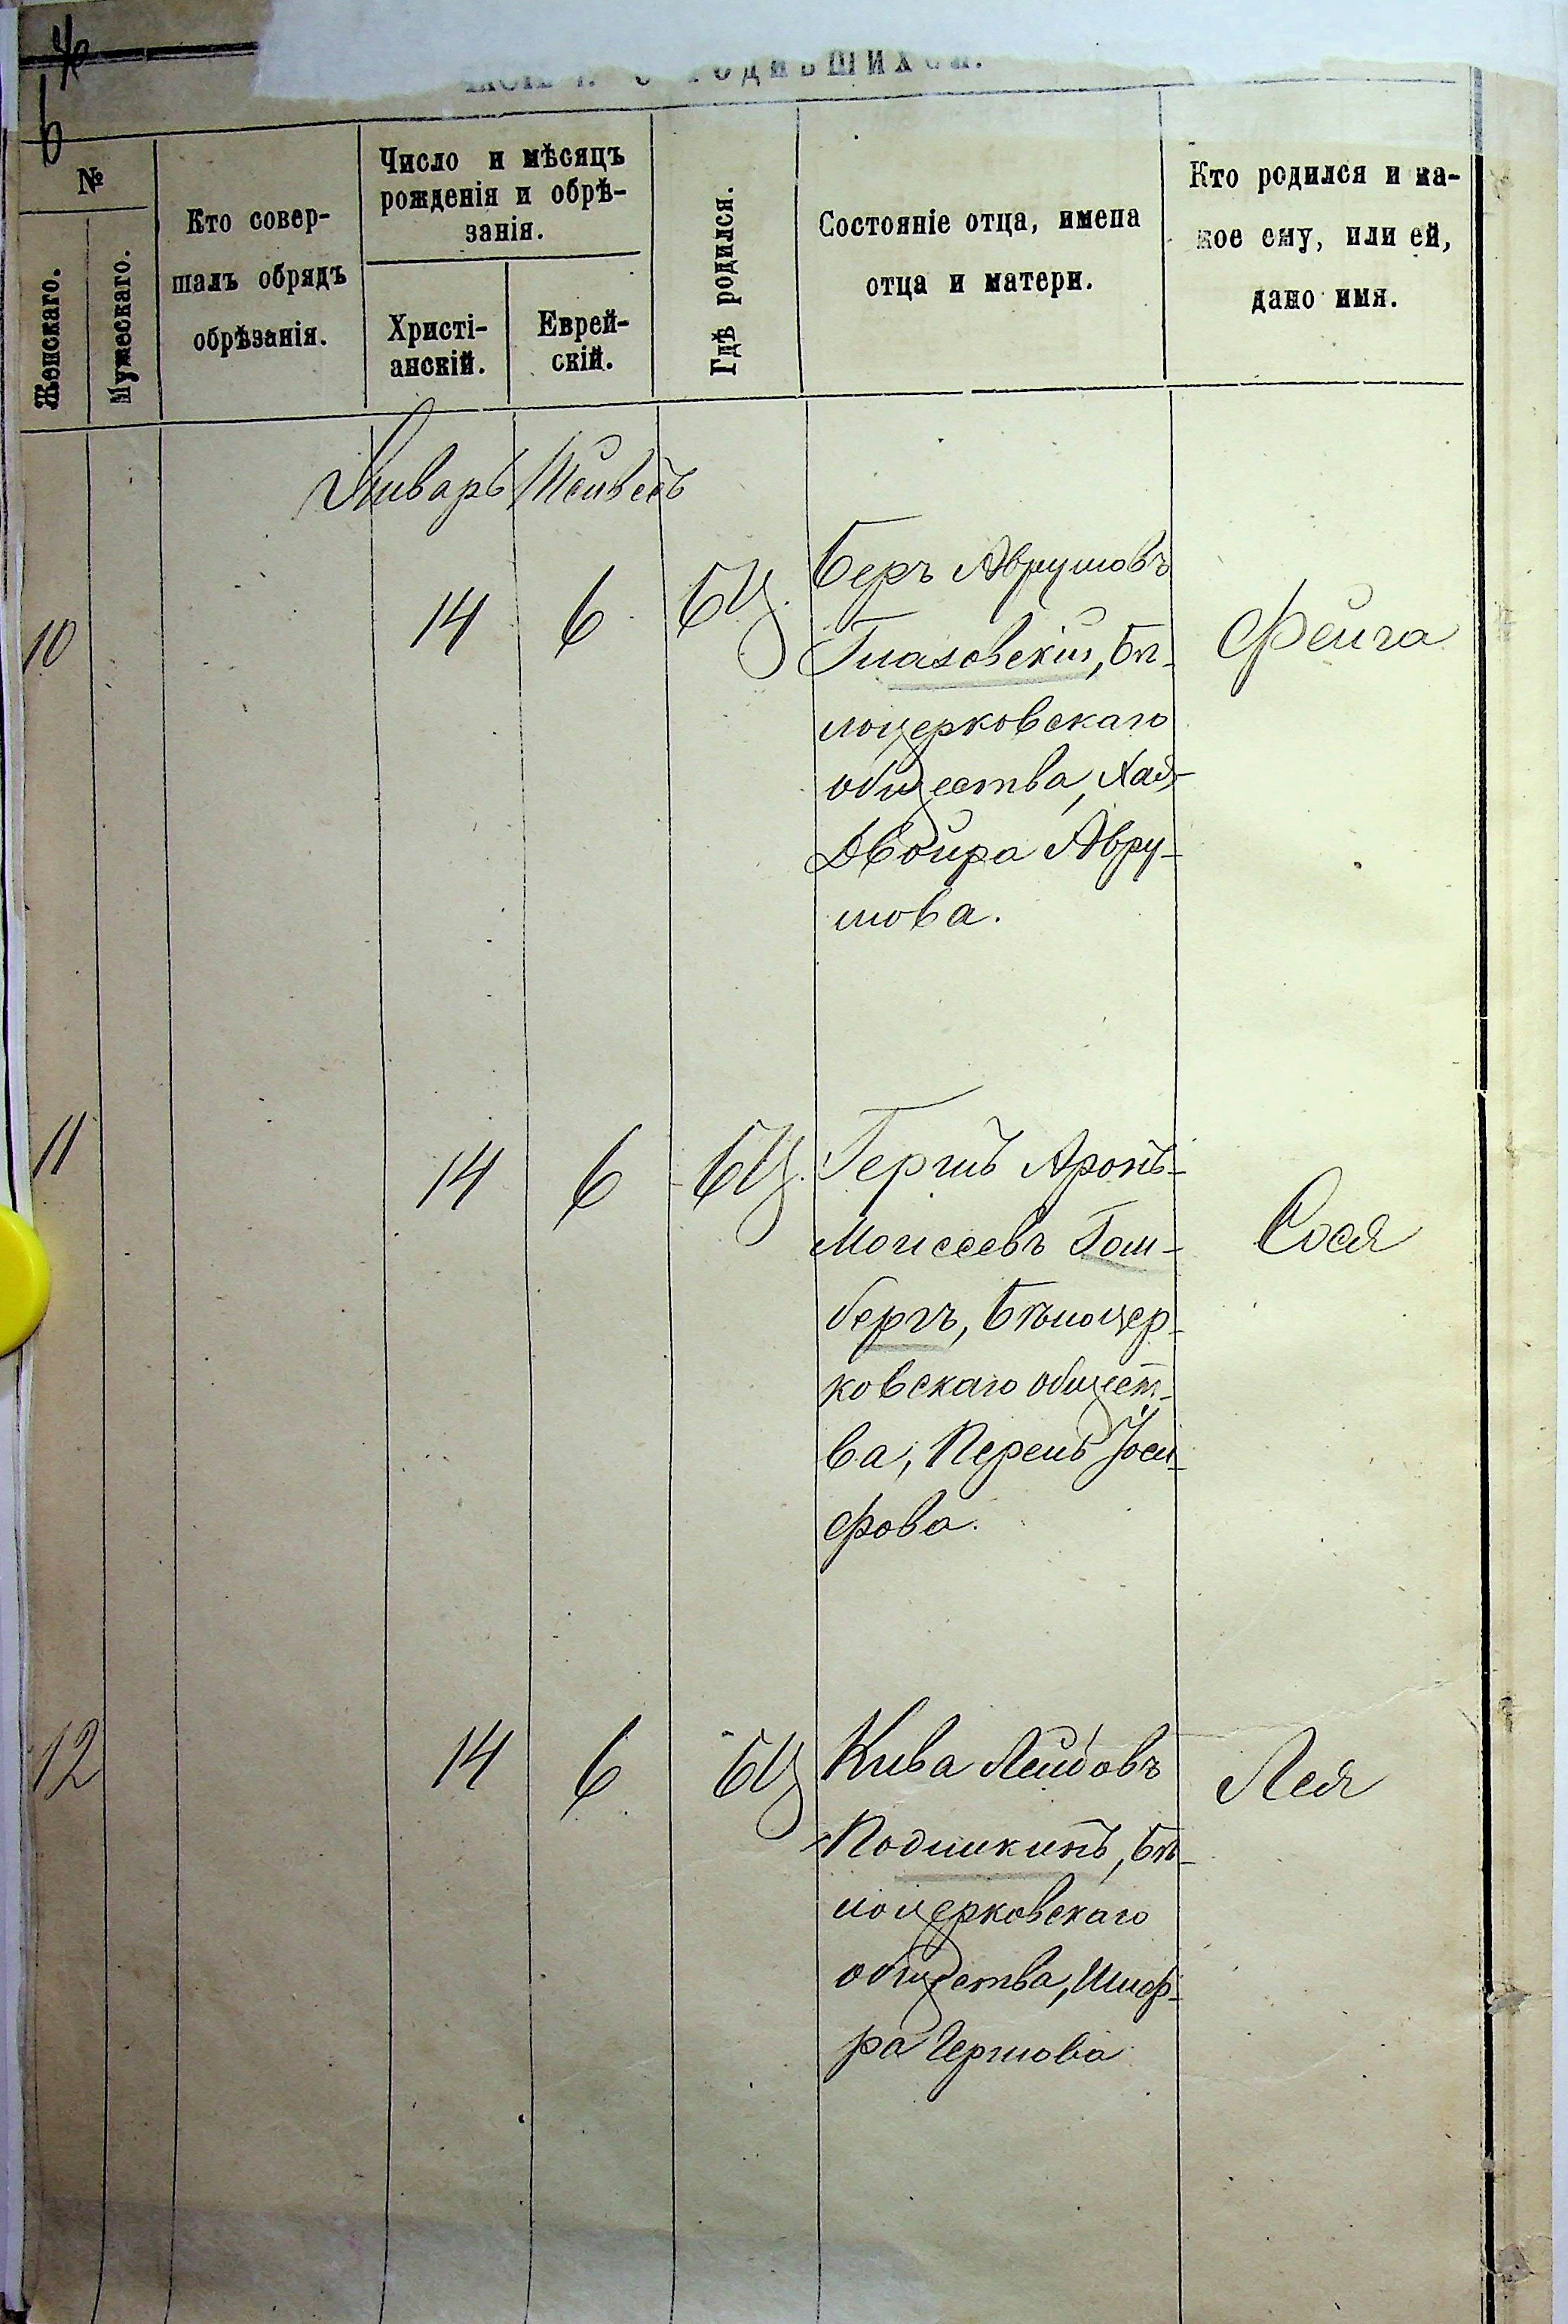 №
Женскаго.
Мужескаго.
Кто совер-
шалъ обрядъ
обрѣзанія.
Число и мѣсяцъ
рожденія и обрѣ-
занія.
Христі-
анскій.
Еврей-
скій.
Гдѣ родился.
Состояніе отца, имена
отца и матери.
Кто родился и ка-
кое ему, или ей,
дано имя.
Январь Шевесъ
10 14 6 БЦ. Беръ Аврумовъ
Глазовскій, Бѣ-
лоцерковскаго
общества, Хая-
Двойра Авру-
мова.
Фейга
11 14 6 БЦ. Гершъ Аронъ-
Моисеевъ Гом-
бергъ, Бѣлоцер-
ковскаго общест-
ва, Перель Іоси-
фова.
Сося
12 14 6 БЦ Кива Лейбовъ
Подишкинъ, Бѣ-
лоцерковскаго
общества, Шиф-
ра Гершова
Лея